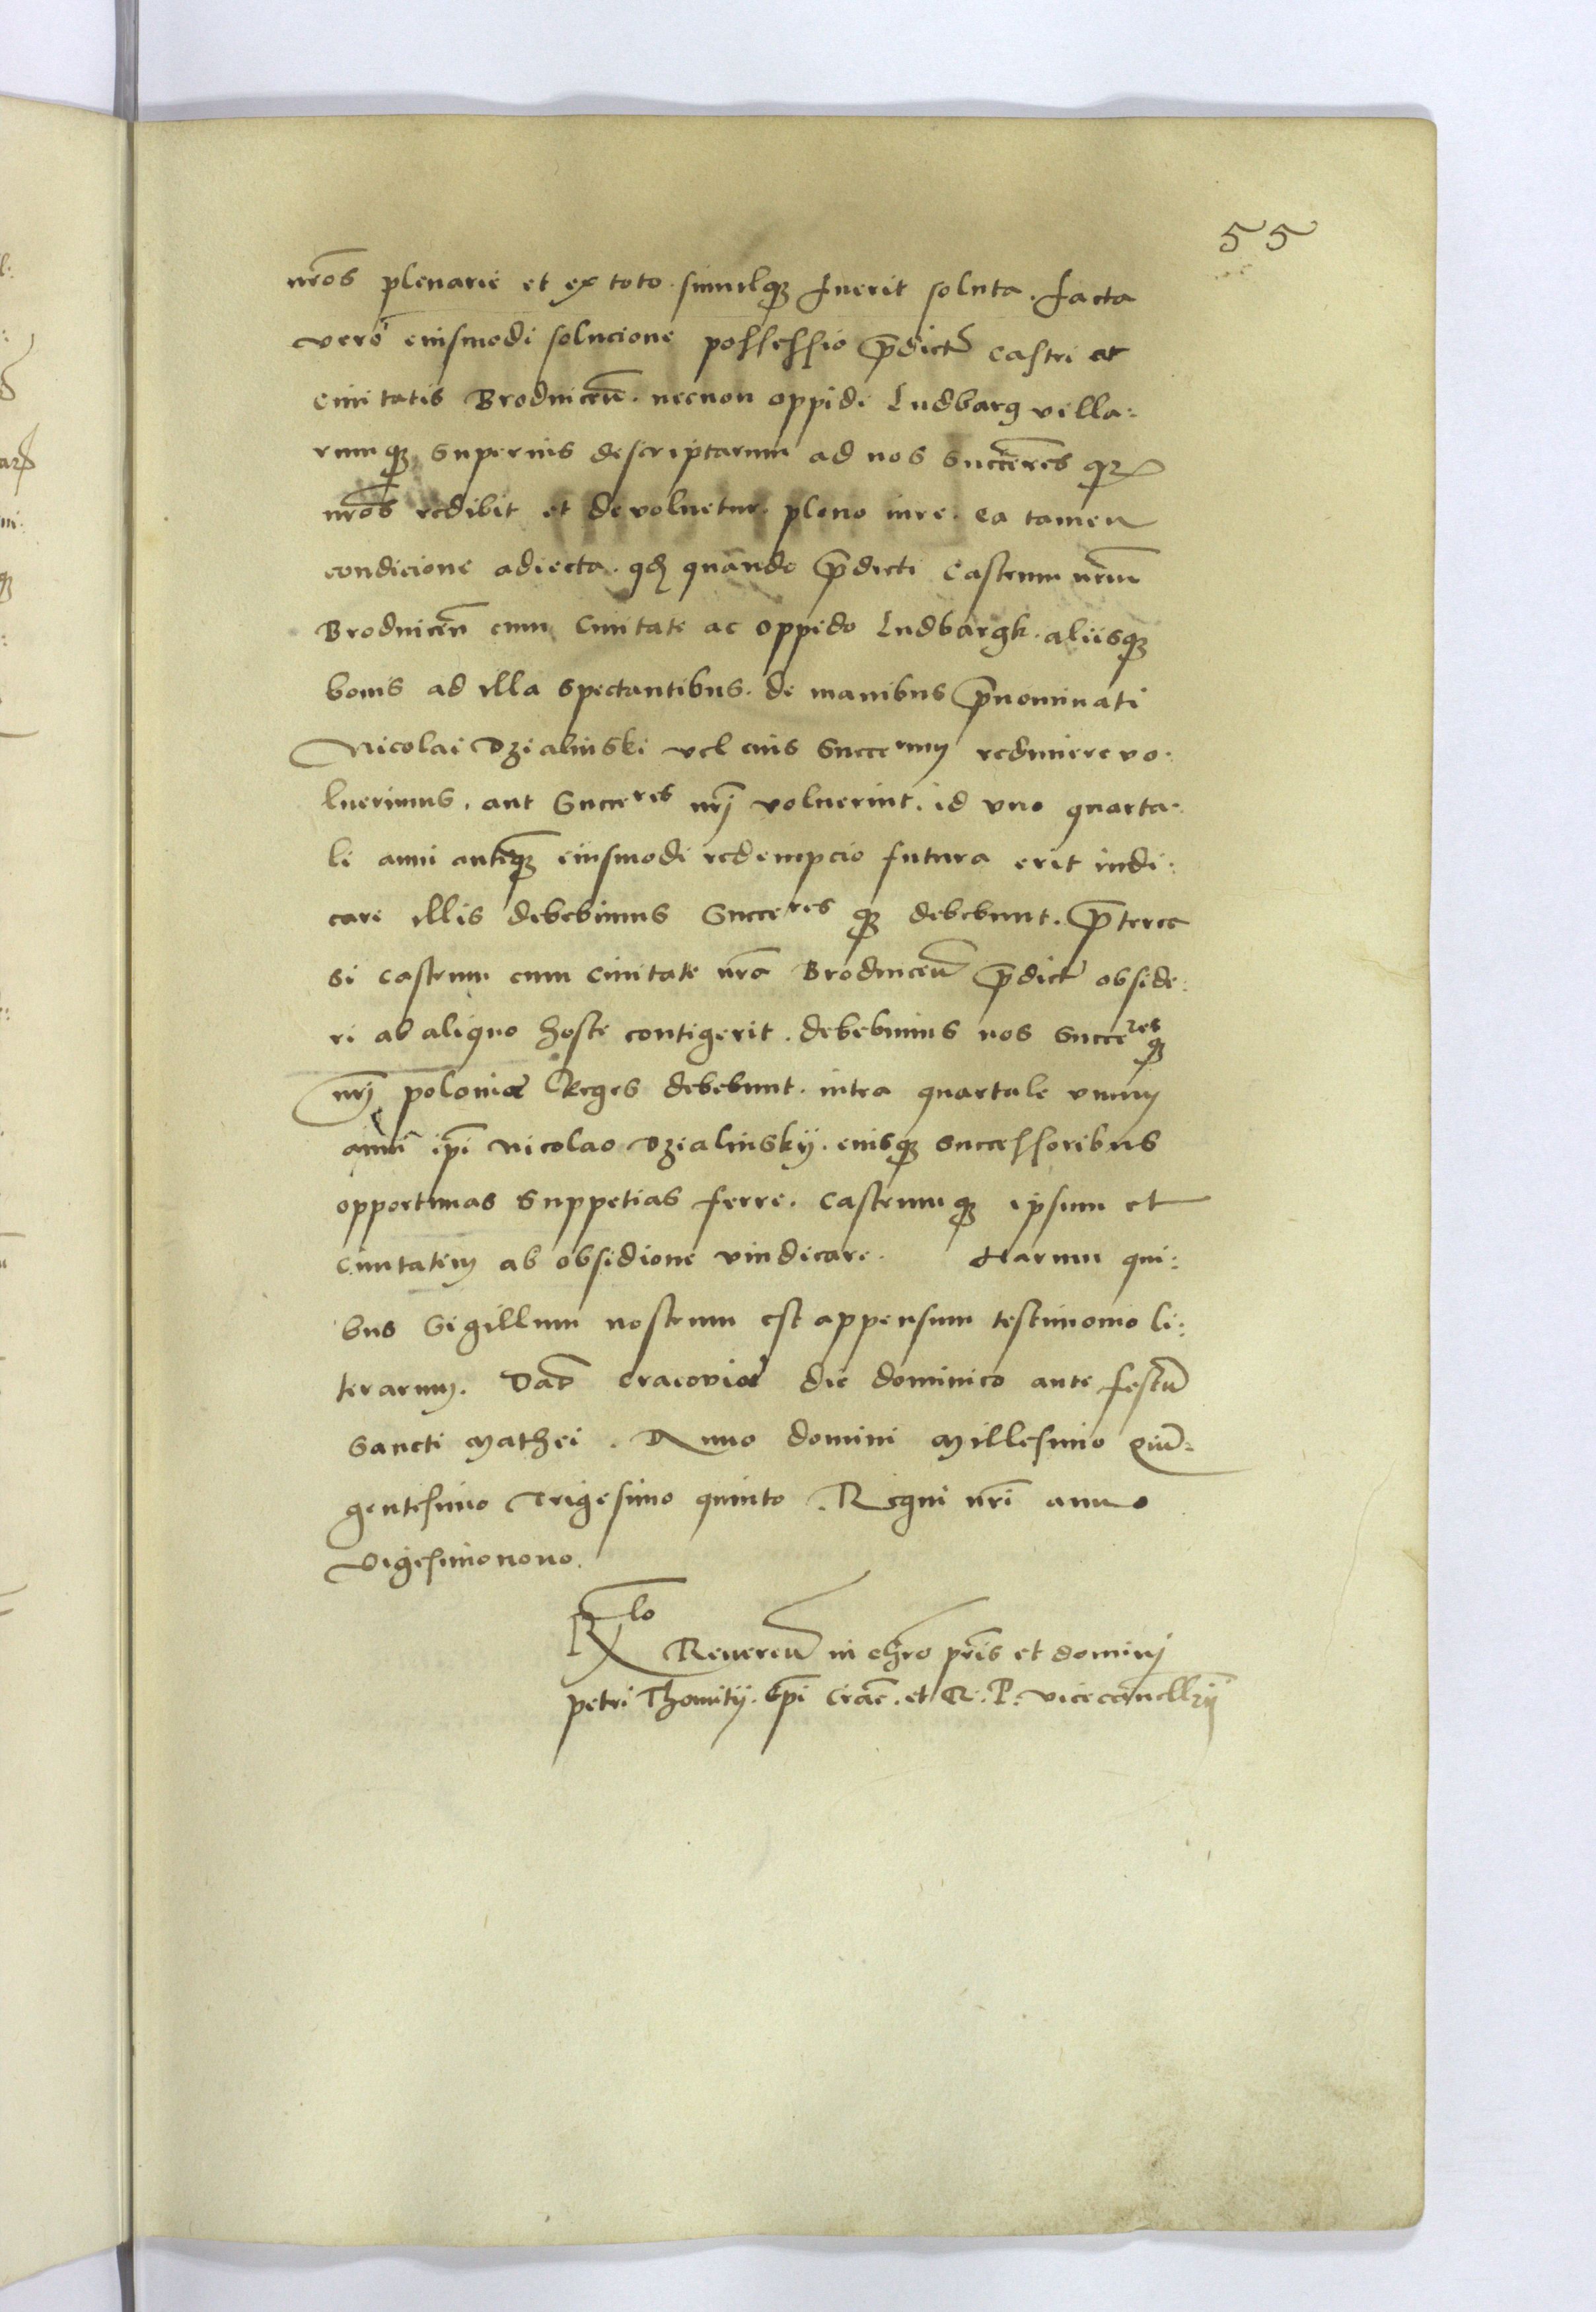 55
nr̃os plenarie et ex toto simulqꝫ fuerit soluta. facta
vero eiusmodi solucione possessio p̃dict̃ castri et
ciuitatis Brodniceñ. necnon oppidi Ludbarg villa:
rumqꝫ superius descriptarum ad nos succeres̃ qꝫ
nr̃os redibit et devoluetur. pleno iure. ea tamen
condicione adiecta. qđ quando p̃dicti Castrum nrũm
Brodniceñ cum Ciuitate ac oppido Ludbargk. aliisqꝫ
bonis ad illa spectantibus. de manibus p̃nominati
Nicolai Dzialinski vel eius Succerum redimere vo:
luerimus. aut Succeres nrĩ voluerint. id vno quarta:
li anni anteqꝫ eiusmodi redempcio futura erit indi:
care illis debebimus Succeres qꝫ debebunt. p̃terea
si castrum cum ciuitate nrã Brodniceñ p̃dict̃ obside:
ri ab aliquo hoste contigerit. debebimus nos Succeres qꝫ
nrĩ poloniæ Reges debebunt. intra quartale vnum
anni ip̃i Nicolao Dzialinskij. eiusqꝫ successoribus
opportunas suppetias ferre. castrumqꝫ ipsum et
Ciuitatem ab obsidione vindicare. Harum qui:
bus Sigillum nostrum est appensum testimonio li:
terarum. Dat̃ Cracoviæ die dominico ante festũ
Sancti Mathei. Anno domini Millesimo Quĩ:
gentesimo Trigesimo quinto. Regni nr̃i anno
Vigesimonono.
R̃lo Reuereñ in chr̃o pr̃is et dominj
petri Thomitij. Ep̃i Crac̃. et R. P. vicecancellrij